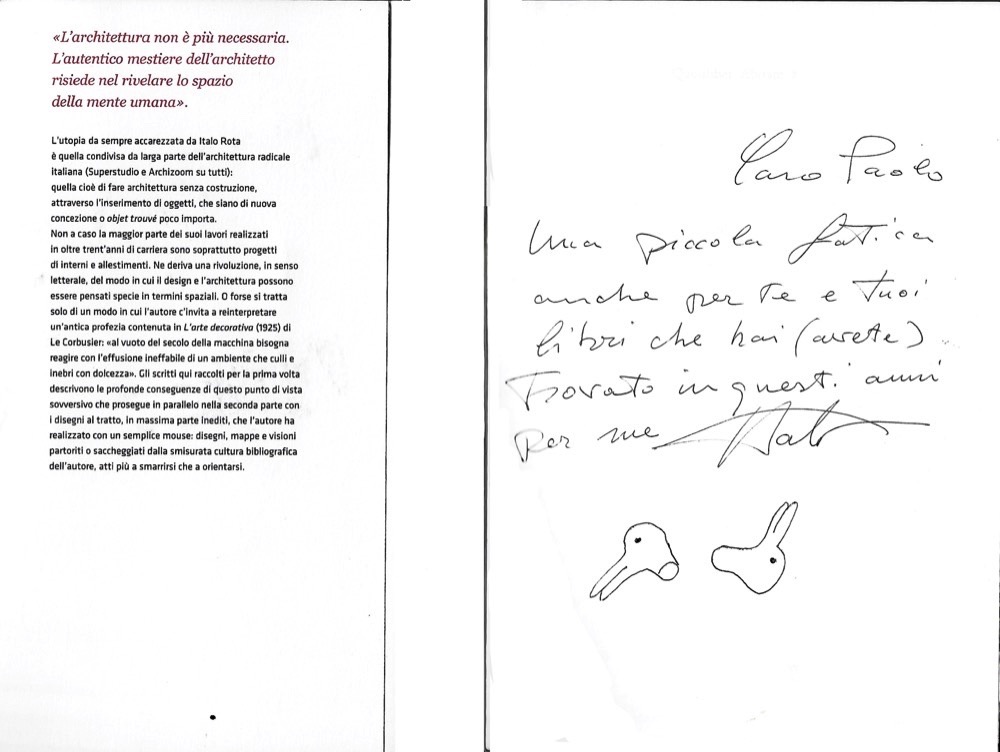 «L'architettura non è più necessaria.
L'autentico mestiere dell'architetto
risiede nel rivelare lo spazio
della mente umana».
L'utopia da sempre accarezzata da Italo Rota
è quella condivisa da larga parte dell'architettura radicale
italiana (Superstudio e Archizoom su tutti):
quella cioè di fare architettura senza costruzione,
attraverso l'inserimento di oggetti, che siano di nuova
concezione o objet trouvé poco importa.
Non a caso la maggior parte dei suoi lavori realizzati
in oltre trent'anni di carriera sono soprattutto progetti
di interni e allestimenti. Ne deriva una rivoluzione, in senso
letterale, del modo in cui il design e l'architettura possono
essere pensati specie in termini spaziali. O forse si tratta
solo di un modo in cui l'autore c'invita a reinterpretare
un'antica profezia contenuta in L'arte decorativa (1925) di
Le Corbusier: «al vuoto del secolo della macchina bisogna
reagire con l'effusione ineffabile di un ambiente che culli e
inebri con dolcezza». Gli scritti qui raccolti per la prima volta
descrivono le profonde conseguenze di questo punto di vista
sovversivo che prosegue in parallelo nella seconda parte con
i disegni al tratto, in massima parte inediti, che l'autore ha
realizzato con un semplice mouse: disegni, mappe e visioni
partoriti o saccheggiati dalla smisurata cultura bibliografica
dell'autore, atti più a smarrirsi che a orientarsi.
Caro Paolo
Una piccola fatica
anche per te e tuoi
libri che hai (avete)
Trovato in questi anni
per me